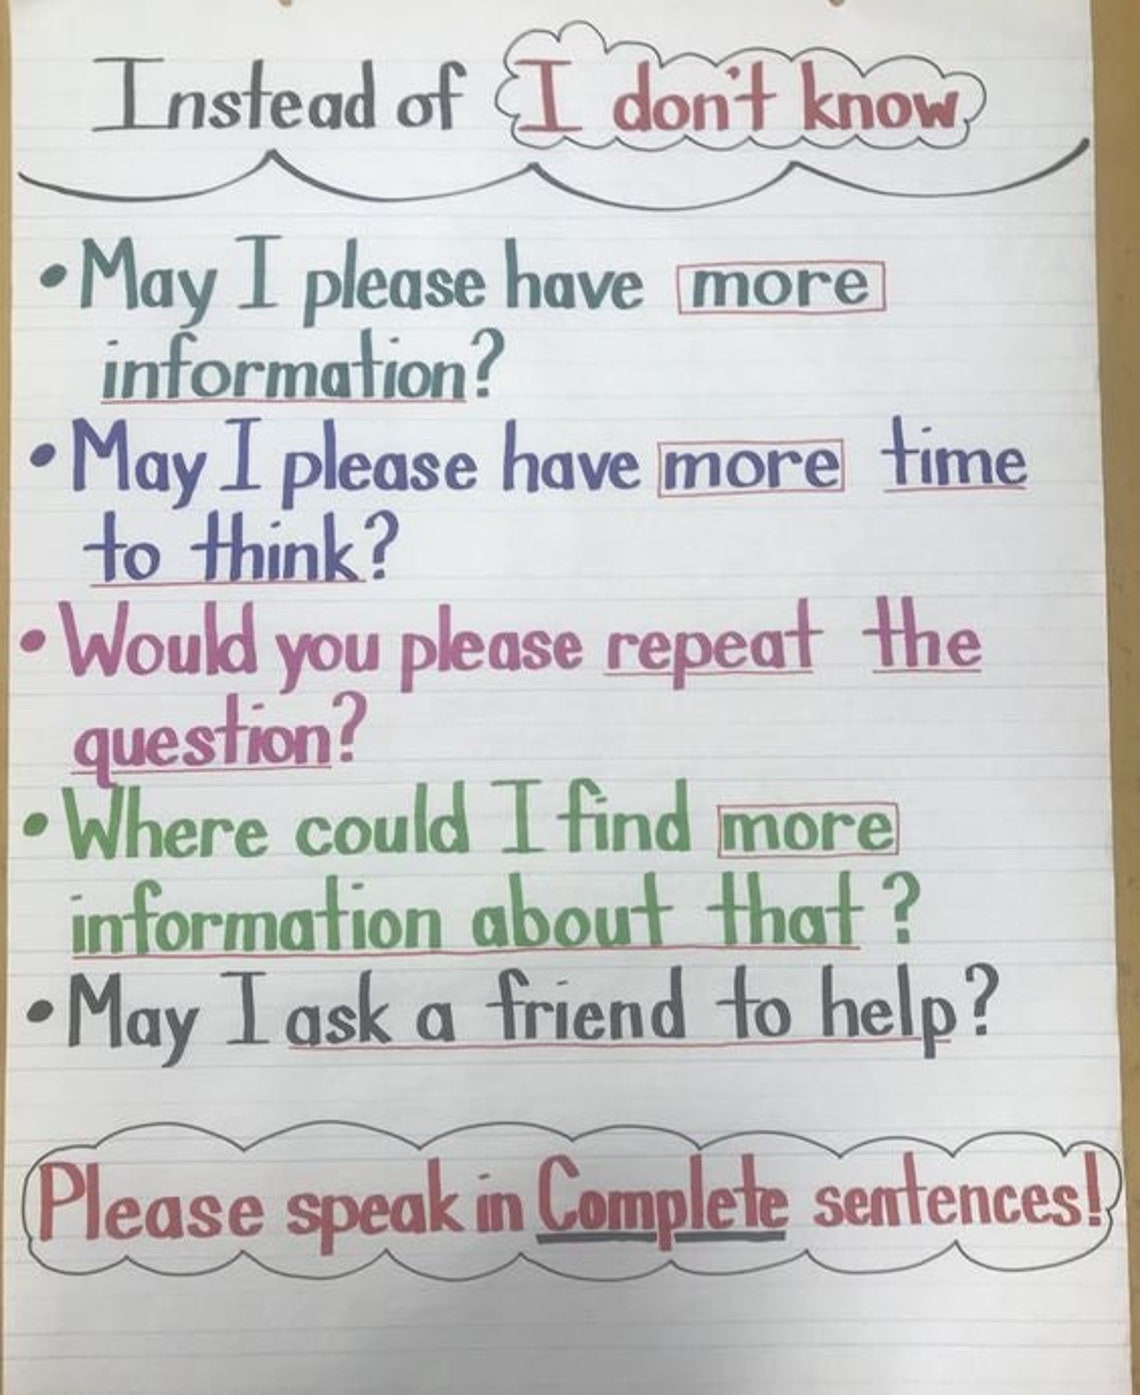 Instead of I don't know
• May I please have more
information?
• May I please have more time
to think?
• Would you please repeat the
question?
• Where could I find more
information about that?
• May I ask a friend to help?
Please speak in Complete sentences!